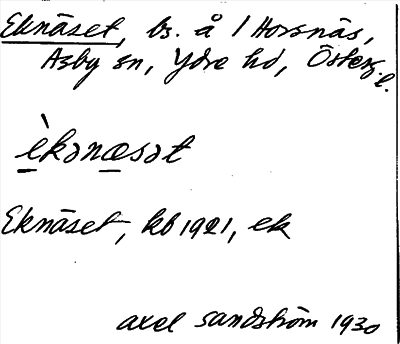 Eknäset, bs. å 1 Horsnäs,
Asby sn, Ydre hd, Österg. l.
èkənæsət
Eknäset, kb 1921, ek
axel sandström 1930